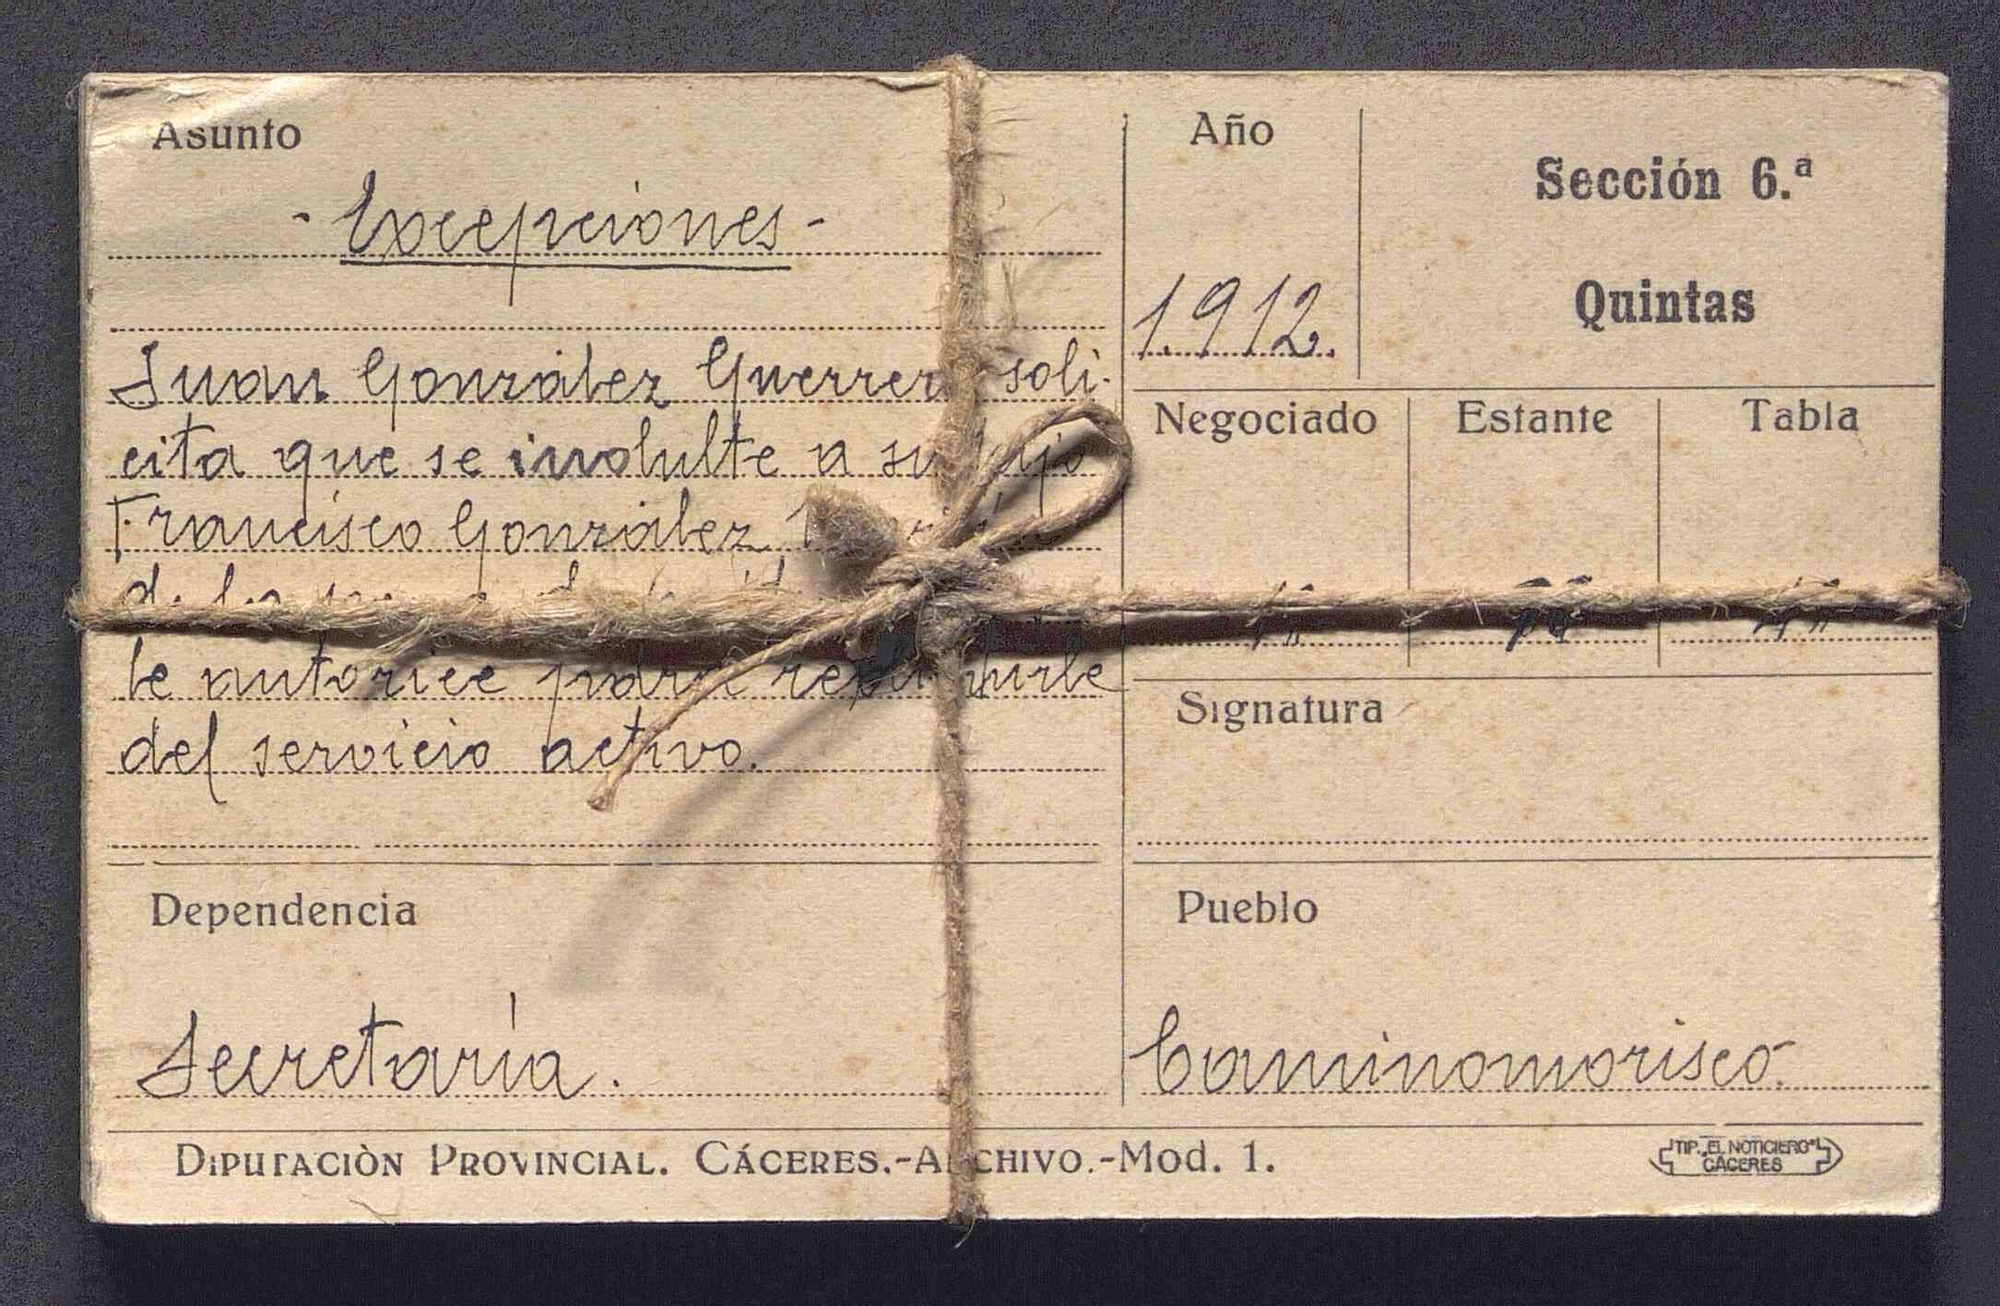 Asunto
- Excepciones -
Juan González Guerrero soli-
cita que se indulte a su hijo
Francisco González
de la
le autorice para
del servicio activo.
Dependencia
Secretaría.
Año
1.912.
Sección 6.ª
Quintas
Negociado Estante Tabla
Signatura
Pueblo
Caminomorisco.
Diputaciòn Provincial. Cáceres.-Archivo.-Mod. 1.
TIP. „EL NOTICIERO"
CÁCERES